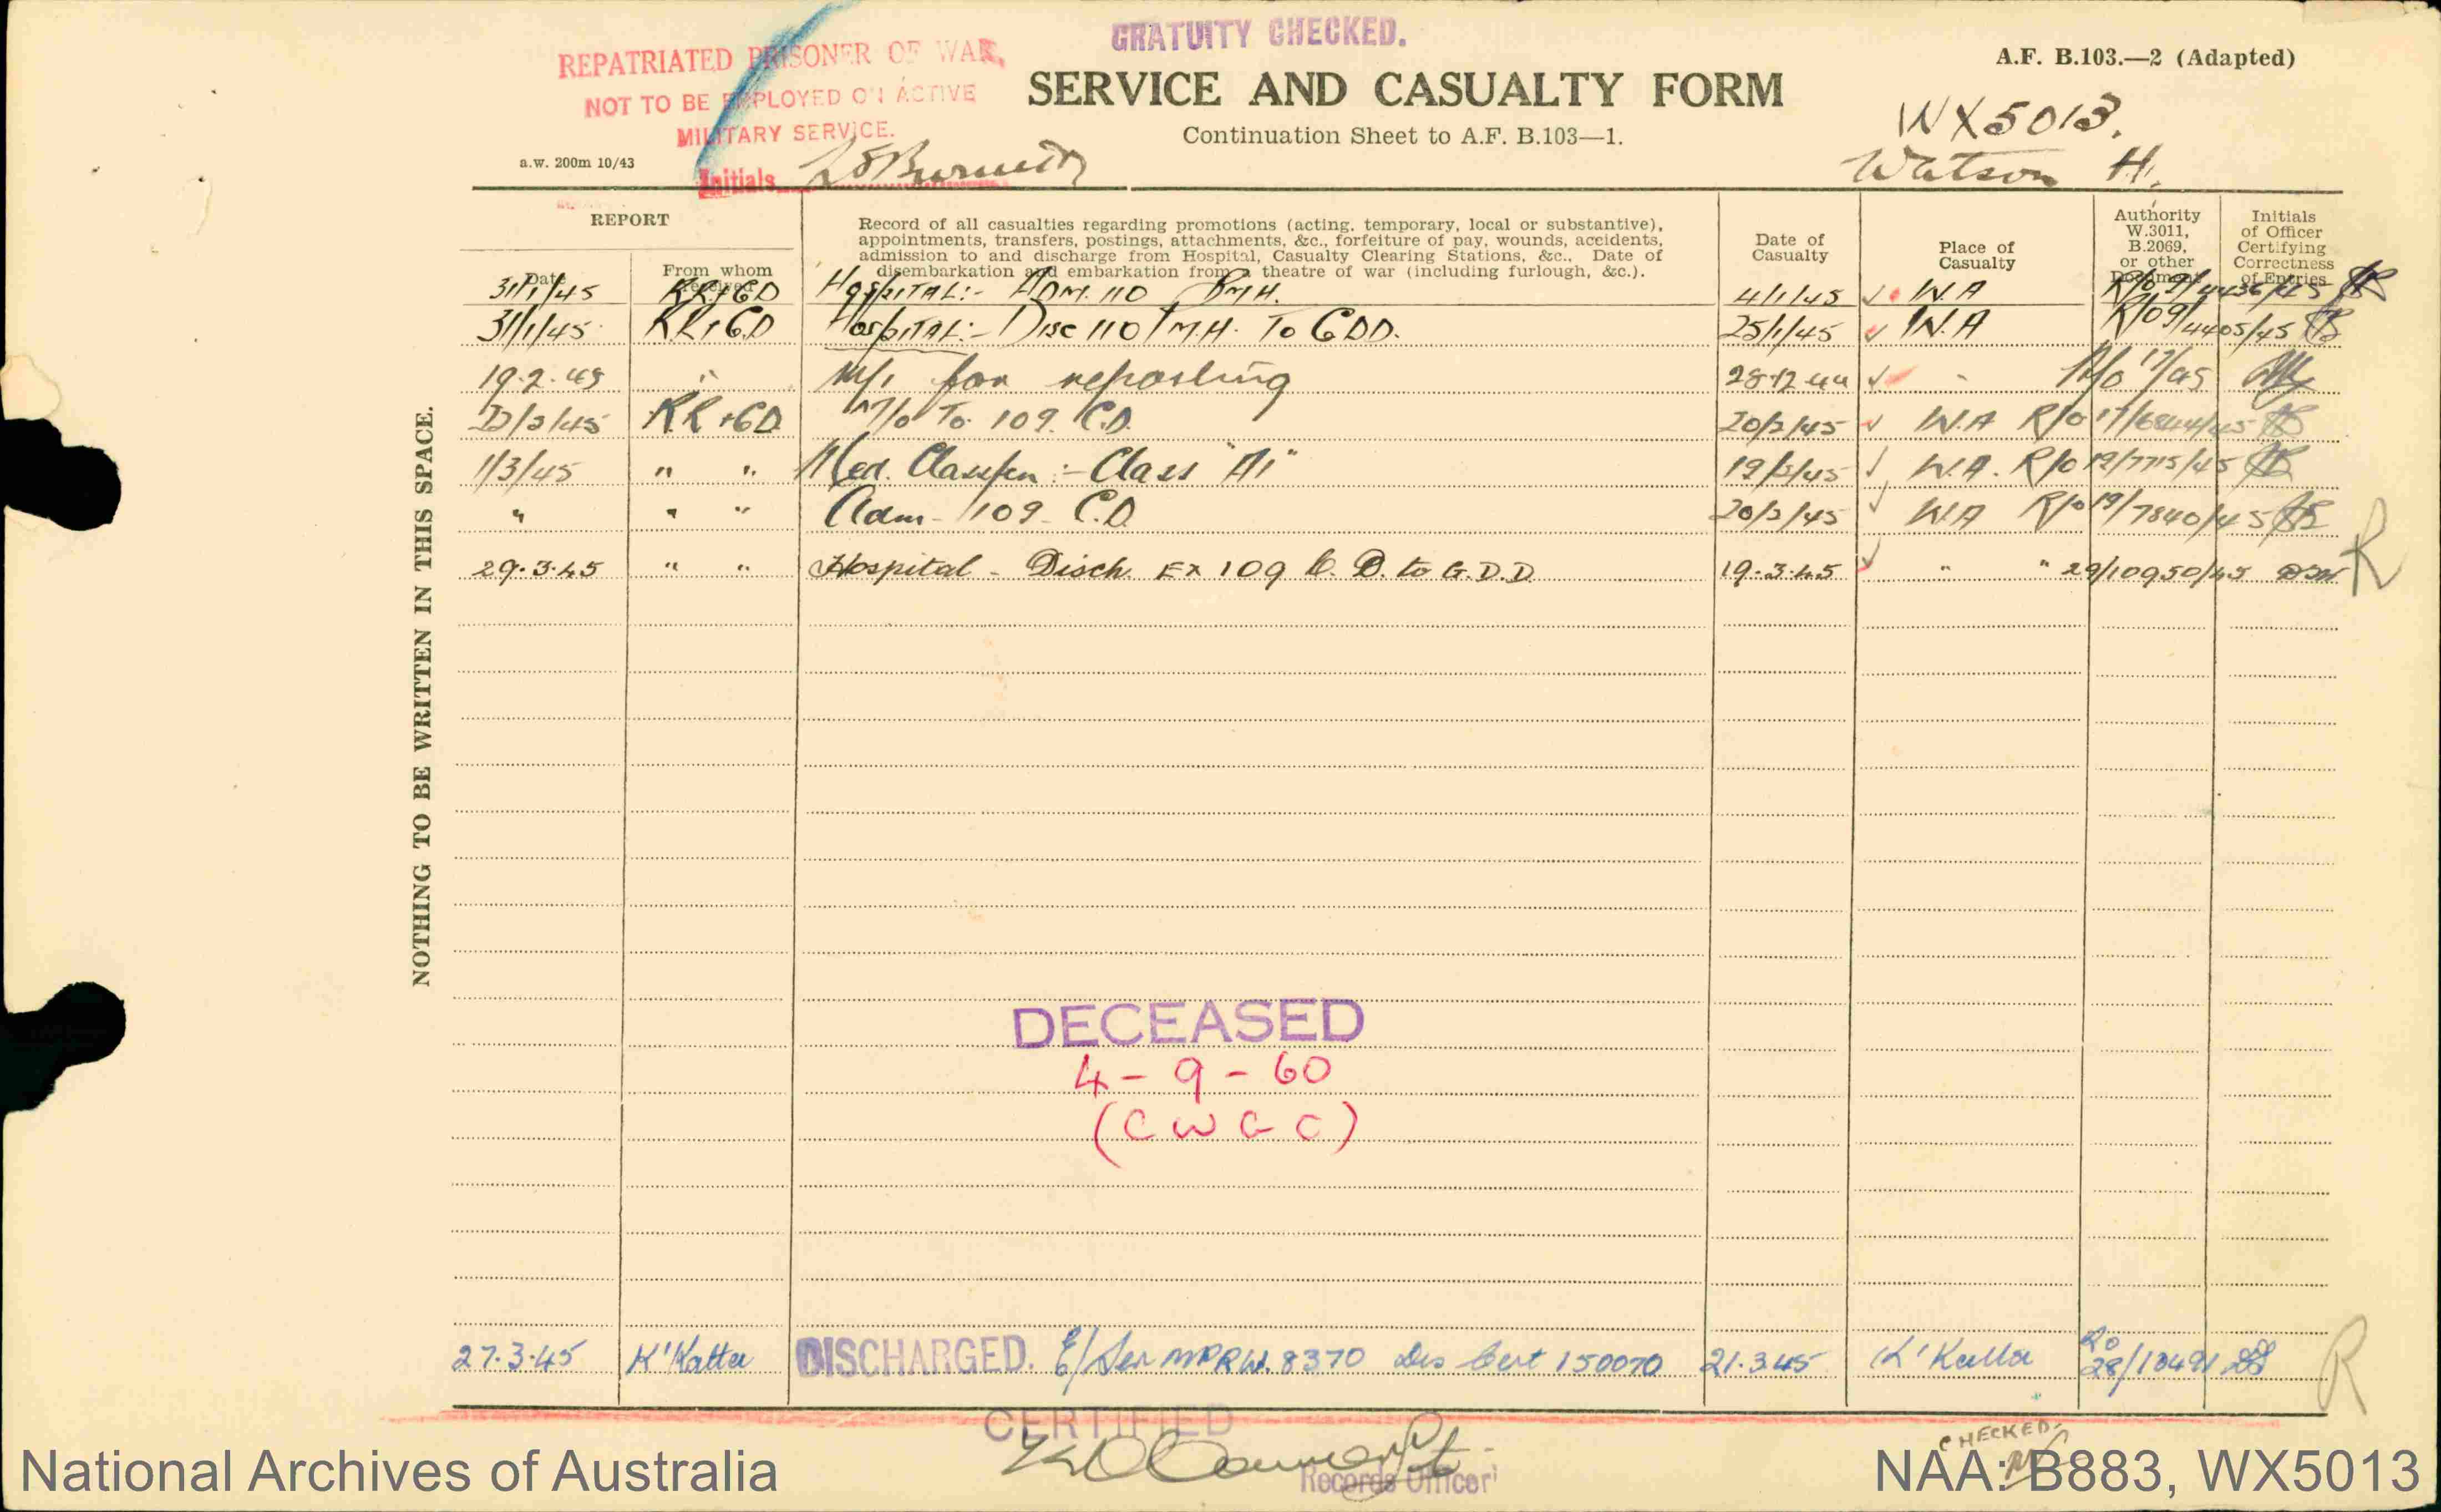 GRATUITY CHECKED.
REPATRIATED PRISONER OF WAR,
NOT TO BE EMPLOYED ON ACTIVE
MILITARY SERVICE.
Initials
A.F. B.103.—2 (Adapted)
SERVICE AND CASUALTY FORM
Continuation Sheet to A.F. B.103—1.
WX5013.
Watson H.
a.w. 200m 10/43
NOTHING TO BE WRITTEN IN THIS SPACE.
REPORT
Date
From whom received
Record of all casualties regarding promotions (acting, temporary, local or substantive),
appointments, transfers, postings, attachments, &c., forfeiture of pay, wounds, accidents,
admission to and discharge from Hospital, Casualty Clearing Stations, &c., Date of
disembarkation and embarkation from a theatre of war (including furlough, &c.).
Date of
Casualty
Place of
Casualty
Authority
W.3011,
B.2069,
or other
Document
Initials
of Officer
Certifying
Correctness
of Entries
31/1/45 RR+GD Hospital:- Adm. 110 PMH. 4/1/45 W.A R/O 9/4436/45
31/1/45 RR+GD Hospital:- Disc 110 PMH. To GDD. 25/1/45 W.A R/O 9/4405/45
19.2.45 " for reposting 28.12.44 17/45
RR+GD To 109. C.D. 20/2/45 W.A R/O
1/3/45 " " Med. Classfcn :- Class "A1" 19/2/45 W.A. R/O 19/7715/45
" " " Adm. 109. C.D. 20/2/45 W.A R/O 19/7840/45
29.3.45 " " Hospital - Disch. Ex 109 C.D. to G.D.D. 19.3.45 " " 29/10950/45
R
DECEASED
4-9-60
(CWGC)
27.3.45 K'Katta DISCHARGED. 8370 Dis Cert 150070 21.3.45 K'Katta RO 28/10491
R
CERTIFIED
Records Officer
CHECKED
National Archives of Australia
NAA: B883, WX5013